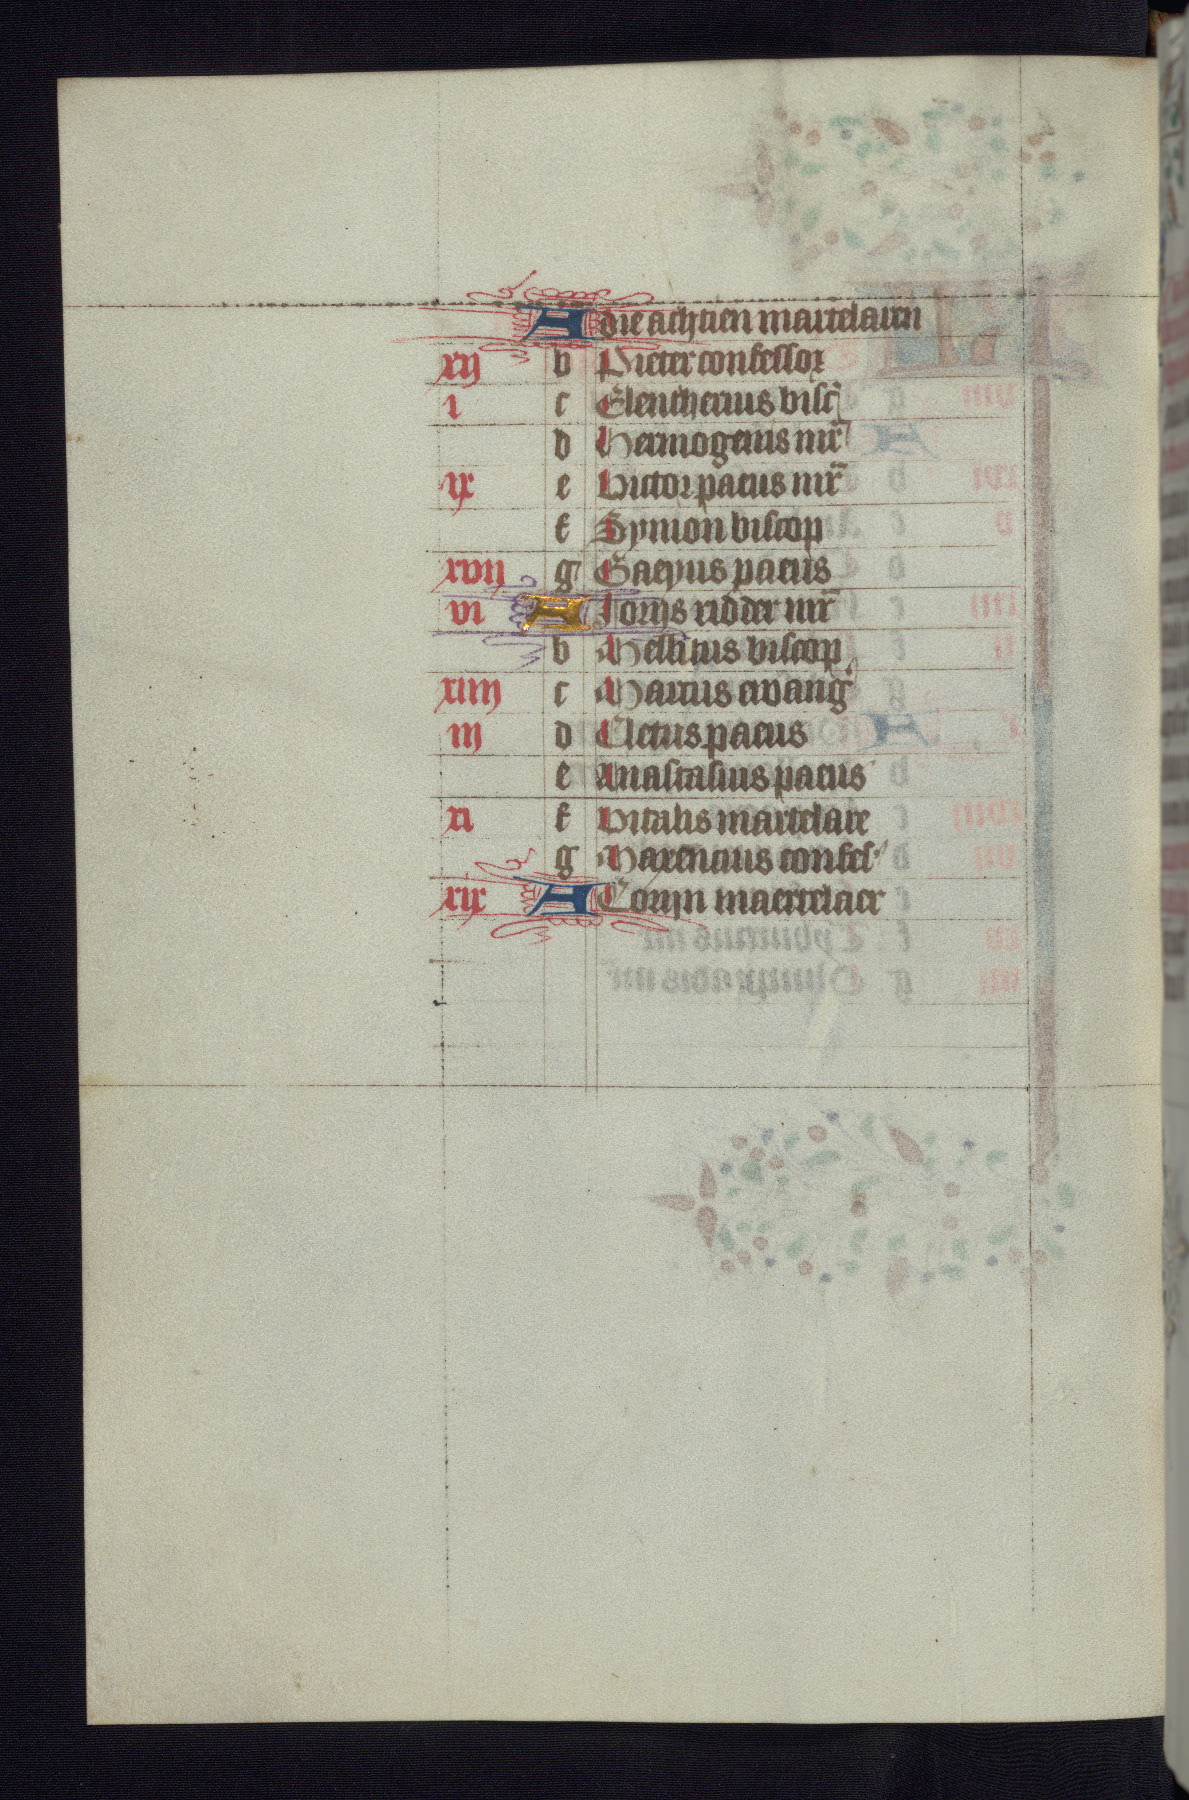 A die achtien martelaren
xij b Pieter confessor
i c Eleutherius bisc
d Hermogenis mr̄
ix e Victor paeus mr̄
f Symon biscop
xvij g Gaeyus paeus
vi A Jorijs ridder mr̄
b Mellitus biscop
xiiij c Marcus ewang
iij d Cletus paeus
e Anastasius paeus
xi f Vitalis martelare
g Maxencius confes
xix A Corijn maertelaer